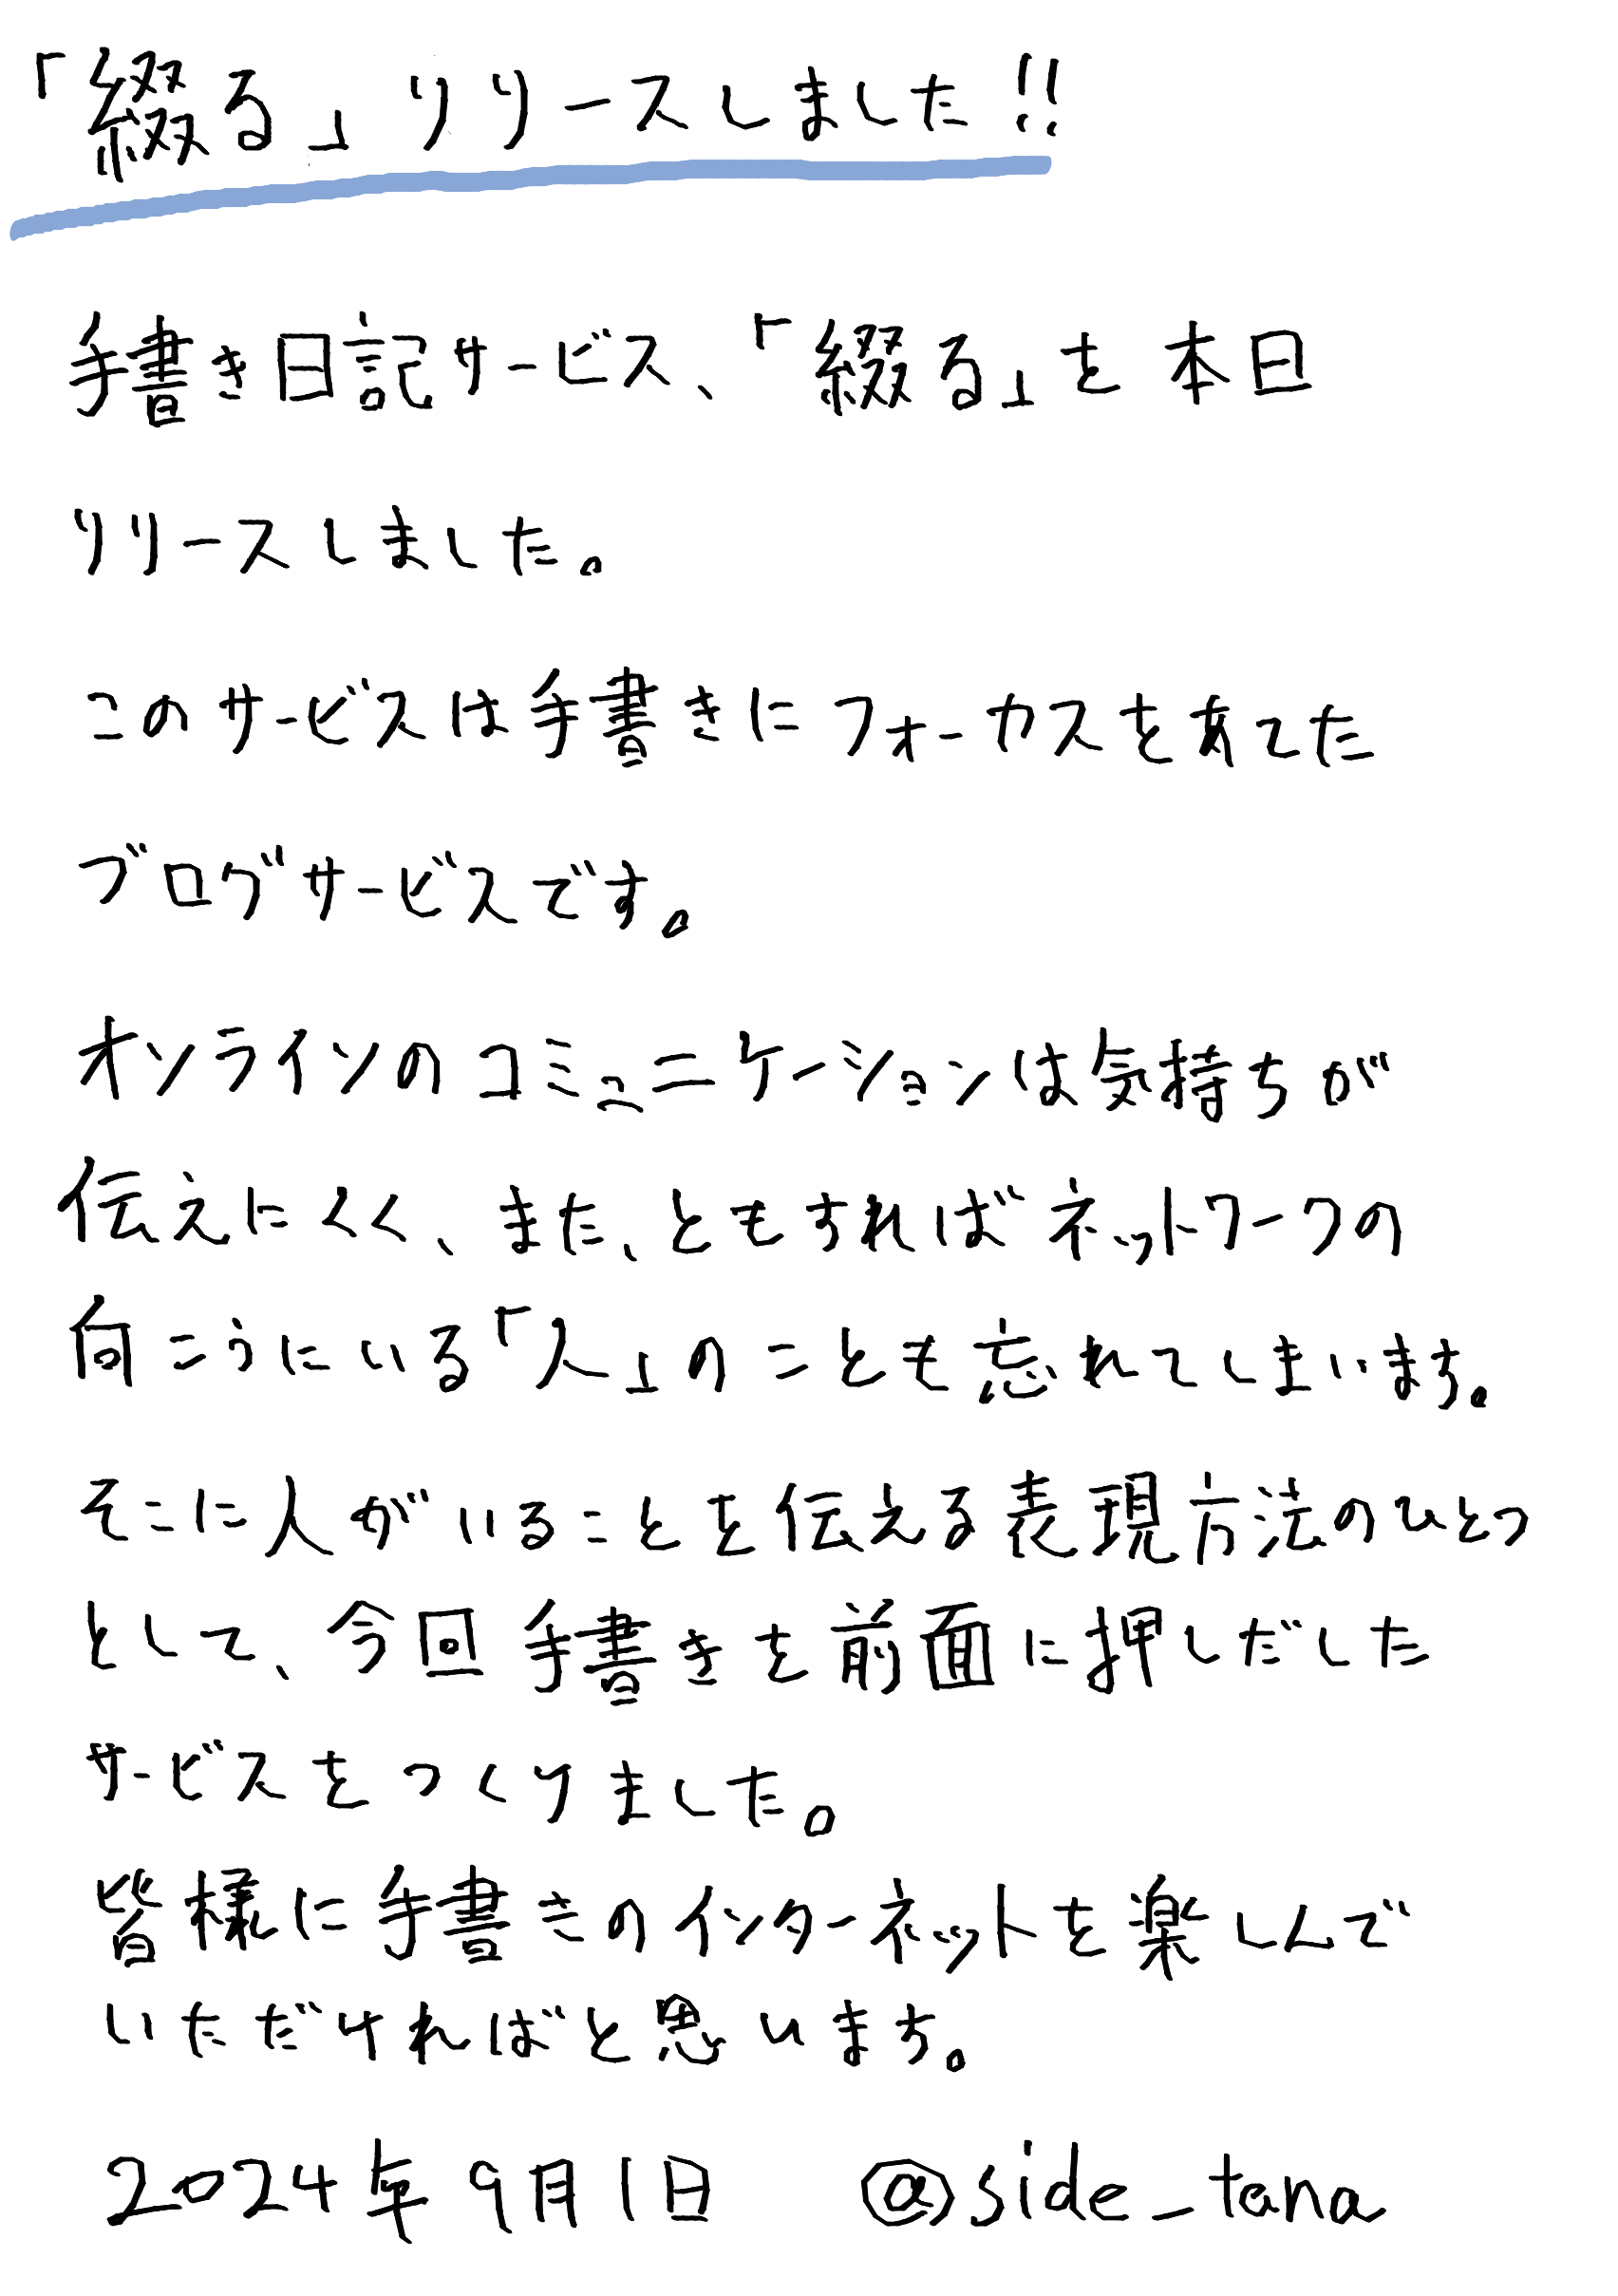 「綴る」リリースしました!!
手書き日記サービス、「綴る」を本日
リリースしました。
このサービスは手書きにフォーカスをあてた
ブログサービスです。
オンラインのコミュニケーションは気持ちが
伝えにくく、また、ともすればネットワークの
向こうにいる「人」のことも忘れてしまいます。
そこに人がいることを伝える表現方法のひとつ
として、今回手書きを前面に押しだした
サービスをつくりました。
皆様に手書きのインターネットを楽しんで
いただければと思います。
2024年9月1日 @side_tana